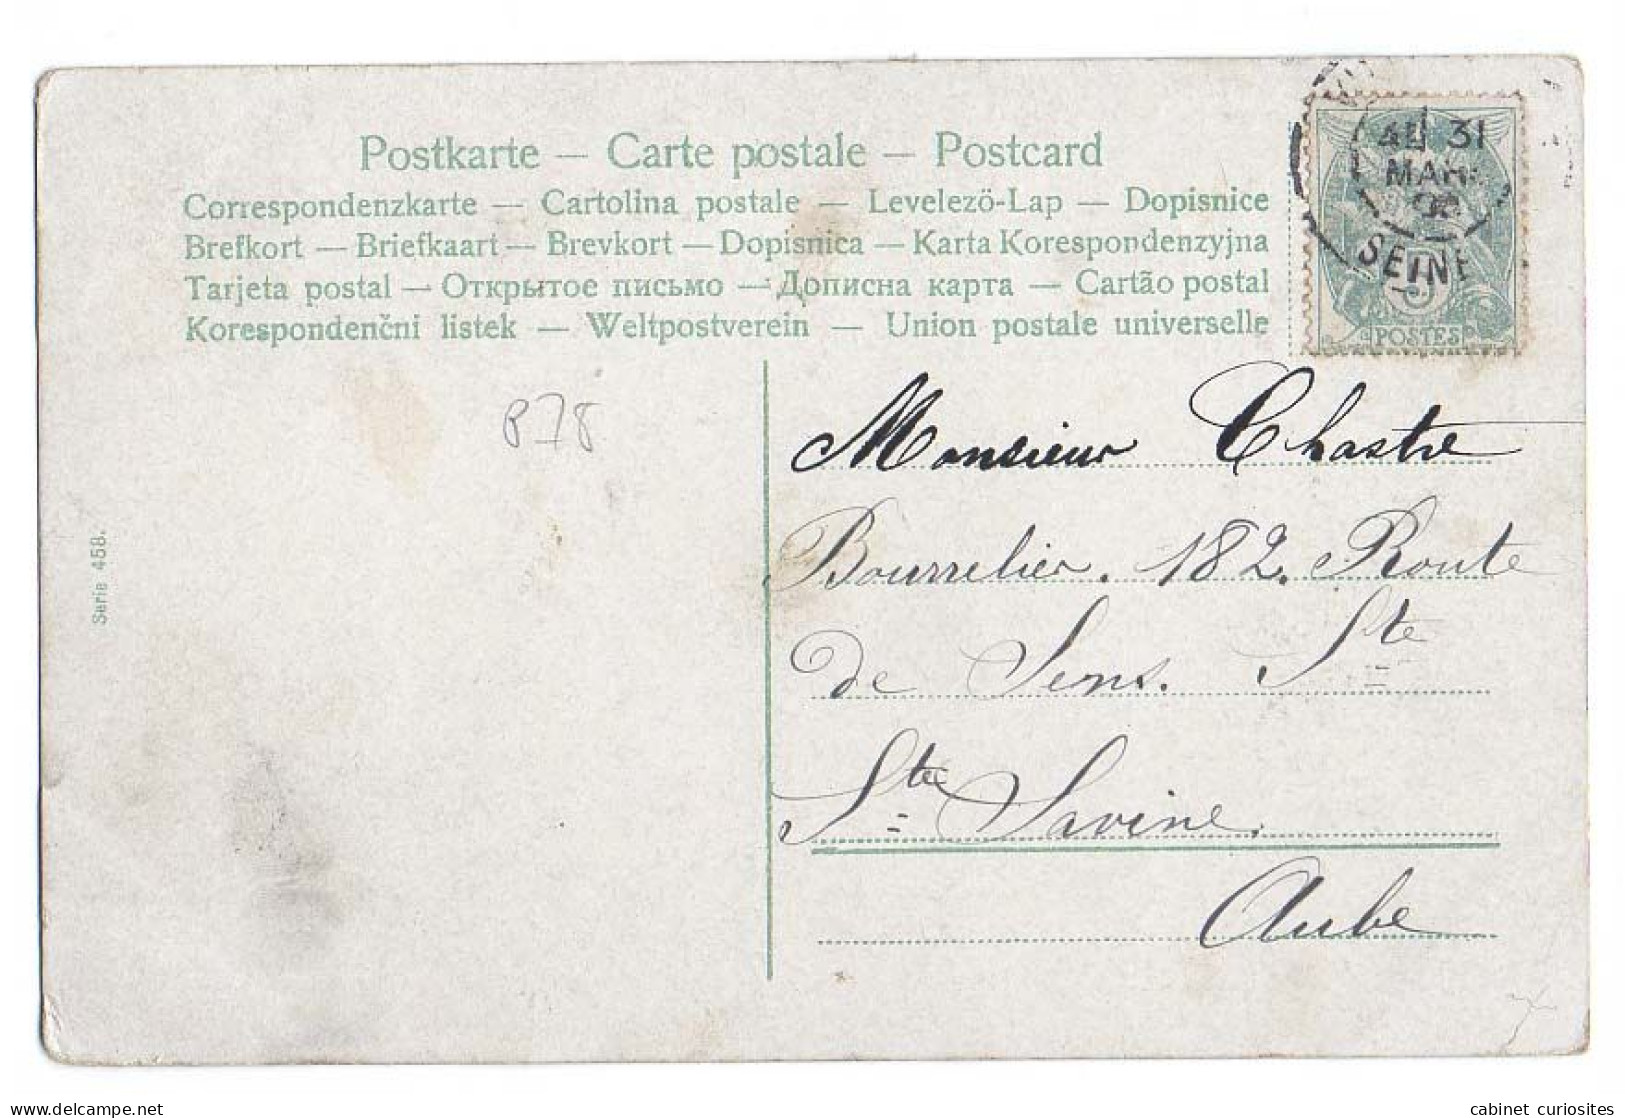 Postkarte — Carte postale — Postcard
Correspondenzkarte — Cartolina postale — Levelező-Lap — Dopisnice
Brefkort — Briefkaart — Brevkort — Dopisnica — Karta Korespondenzyjna
Tarjeta postal — Открытое письмо — Дописна карта — Cartão postal
Korespondenčni listek — Weltpostverein — Union postale universelle
31
MARS
SEINE
5
POSTES
878
Serie 458.
Monsieur Chastre
Bourrelier. 182. Route
de Sens. Ste
Ste Savine.
Aube
cabinet curiosites
www.delcampe.net